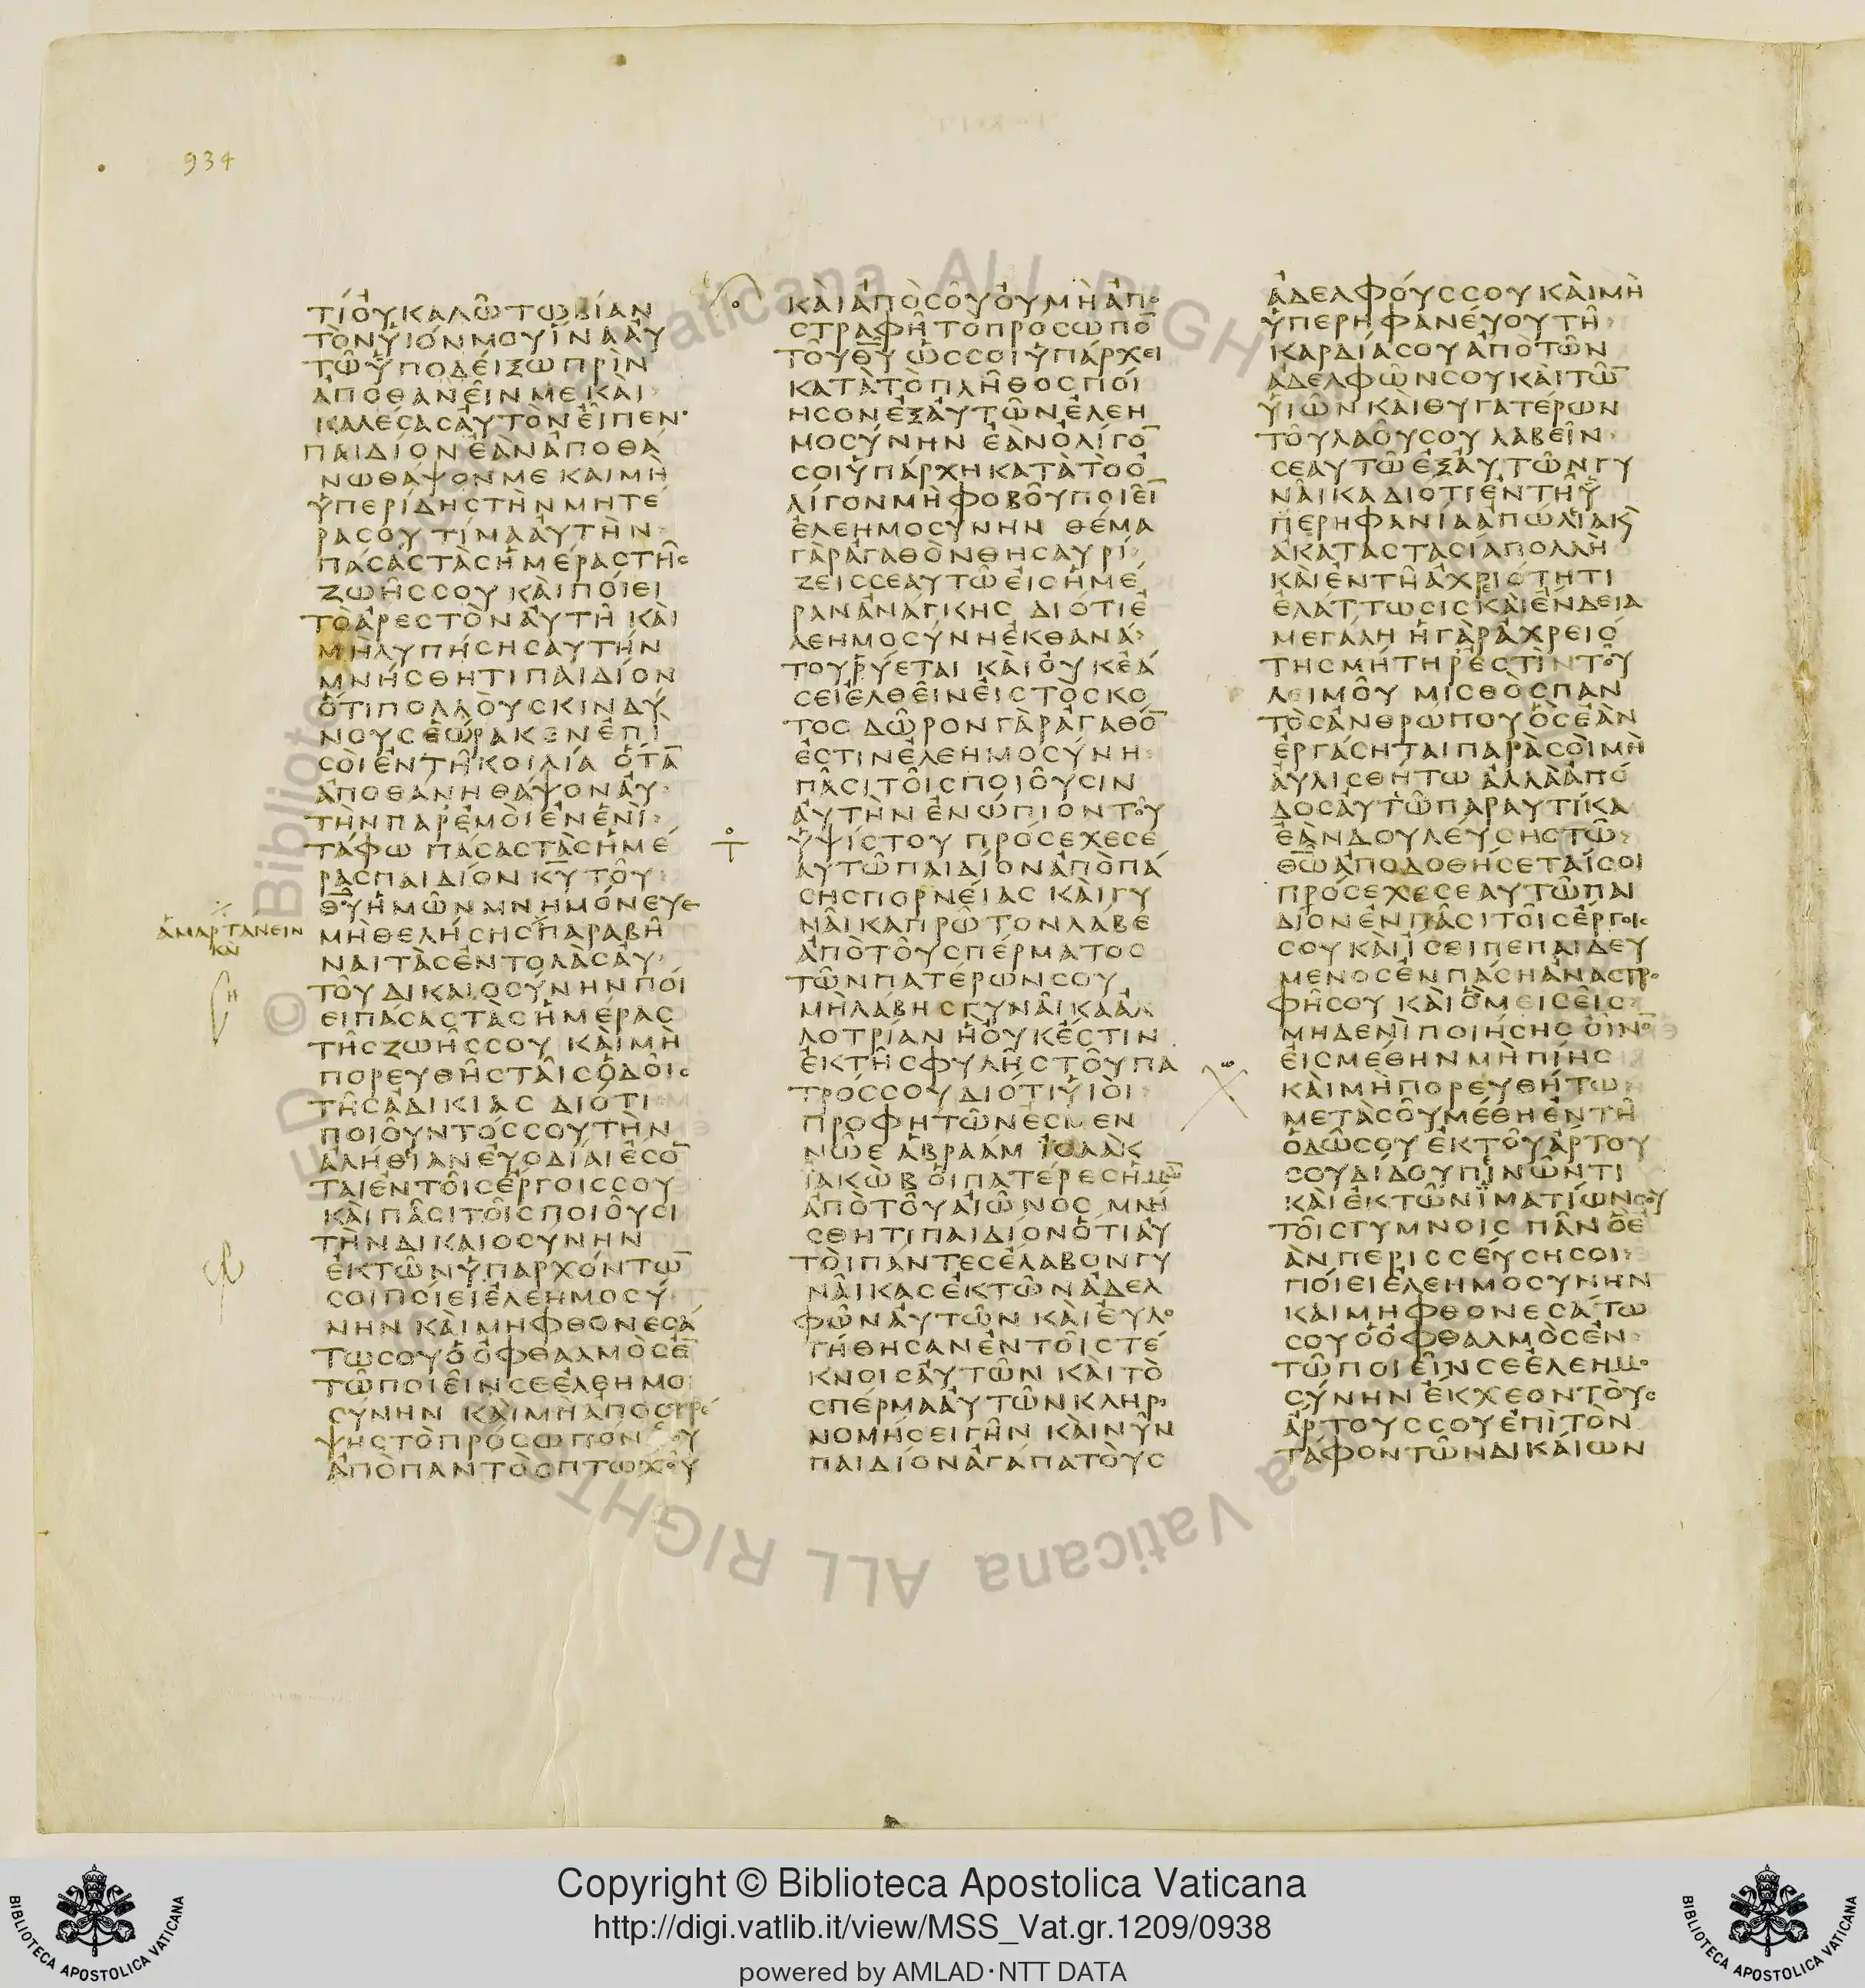 934
ΤΙ ΟΥ ΚΑΛΩ ΤΩΒΙΑΝ
ΤΟΝ ΥΙΟΝ ΜΟΥ ΙΝΑ ΑΥ
ΤΩ ΥΠΟΔΕΙΞΩ ΠΡΙΝ
ΑΠΟΘΑΝΕΙΝ ΜΕ ΚΑΙ
ΚΑΛΕΣΑΣ ΑΥΤΟΝ ΕΙΠΕΝ·
ΠΑΙΔΙΟΝ ΕΑΝ ΑΠΟΘΑ
ΝΩ ΘΑΨΟΝ ΜΕ ΚΑΙ ΜΗ
ΥΠΕΡΙΔΗΣ ΤΗΝ ΜΗΤΕ
ΡΑ ΣΟΥ ΤΙΜΑ ΑΥΤΗΝ
ΠΑΣΑΣ ΤΑΣ ΗΜΕΡΑΣ ΤΗΣ
ΖΩΗΣ ΣΟΥ ΚΑΙ ΠΟΙΕΙ
ΤΟ ΑΡΕΣΤΟΝ ΑΥΤΗ ΚΑΙ
ΜΗ ΛΥΠΗΣΗΣ ΑΥΤΗΝ
ΜΝΗΣΘΗΤΙ ΠΑΙΔΙΟΝ
ΟΤΙ ΠΟΛΛΟΥΣ ΚΙΝΔΥ
ΝΟΥΣ ΕΩΡΑΚΕΝ ΕΠΙ
ΣΟΙ ΕΝ ΤΗ ΚΟΙΛΙΑ ΟΤΑ̅
ΑΠΟΘΑΝΗ ΘΑΨΟΝ ΑΥ
ΤΗΝ ΠΑΡ ΕΜΟΙ ΕΝ ΕΝΙ
ΤΑΦΩ ΠΑΣΑΣ ΤΑΣ ΗΜΕ
ΡΑΣ ΠΑΙΔΙΟΝ Κ̅Υ̅ ΤΟΥ
Θ̅Υ̅ ΗΜΩΝ ΜΝΗΜΟΝΕΥΕ
ΑΜΑΡΤΑΝΕΙΝ
ΚΑΙ
ΜΗ ΘΕΛΗΣΗΣ ΠΑΡΑΒΗ
ΝΑΙ ΤΑΣ ΕΝΤΟΛΑΣ ΑΥ
ΤΟΥ ΔΙΚΑΙΟΣΥΝΗΝ ΠΟΙ
ΕΙ ΠΑΣΑΣ ΤΑΣ ΗΜΕΡΑΣ
ΤΗΣ ΖΩΗΣ ΣΟΥ ΚΑΙ ΜΗ
ΠΟΡΕΥΘΗΣ ΤΑΙΣ ΟΔΟΙΣ
ΤΗΣ ΑΔΙΚΙΑΣ ΔΙΟΤΙ
ΠΟΙΟΥΝΤΟΣ ΣΟΥ ΤΗΝ
ΑΛΗΘΙΑΝ ΕΥΟΔΙΑΙ ΕΣΟ̅
ΤΑΙ ΕΝ ΤΟΙΣ ΕΡΓΟΙΣ ΣΟΥ
ΚΑΙ ΠΑΣΙ ΤΟΙΣ ΠΟΙΟΥΣΙ
ΤΗΝ ΔΙΚΑΙΟΣΥΝΗΝ
ΕΚ ΤΩΝ ΥΠΑΡΧΟΝΤΩ̅
ΣΟΙ ΠΟΙΕΙ ΕΛΕΗΜΟΣΥ
ΝΗΝ ΚΑΙ ΜΗ ΦΘΟΝΕΣΑ
ΤΩ ΣΟΥ Ο ΟΦΘΑΛΜΟΣ Ε̅
ΤΩ ΠΟΙΕΙΝ ΣΕ ΕΛΕΗΜΟ
ΣΥΝΗΝ ΚΑΙ ΜΗ ΑΠΟΣΤΡΕ
ΨΗΣ ΤΟ ΠΡΟΣΩΠΟΝ ΣΟΥ
ΑΠΟ ΠΑΝΤΟΣ ΠΤΩΧΟΥ
ΚΑΙ ΑΠΟ ΣΟΥ ΟΥ ΜΗ ΑΠΟ
ΣΤΡΑΦΗ ΤΟ ΠΡΟΣΩΠΟ̅
ΤΟΥ Θ̅Υ̅ ΩΣ ΣΟΙ ΥΠΑΡΧΕΙ
ΚΑΤΑ ΤΟ ΠΛΗΘΟΣ ΠΟΙ
ΗΣΟΝ ΕΞ ΑΥΤΩΝ ΕΛΕΗ
ΜΟΣΥΝΗΝ ΕΑΝ ΟΛΙΓΟ̅
ΣΟΙ ΥΠΑΡΧΗ ΚΑΤΑ ΤΟ Ο
ΛΙΓΟΝ ΜΗ ΦΟΒΟΥ ΠΟΙΕΙ̅
ΕΛΕΗΜΟΣΥΝΗΝ ΘΕΜΑ
ΓΑΡ ΑΓΑΘΟΝ ΘΗΣΑΥΡΙ
ΖΕΙΣ ΣΕΑΥΤΩ ΕΙΣ ΗΜΕ
ΡΑΝ ΑΝΑΓΚΗΣ ΔΙΟΤΙ Ε
ΛΕΗΜΟΣΥΝΗ ΕΚ ΘΑΝΑ
ΤΟΥ ΡΥΕΤΑΙ ΚΑΙ ΟΥΚ ΕΑ
ΣΕΙ ΕΛΘΕΙΝ ΕΙΣ ΤΟ ΣΚΟ
ΤΟΣ ΔΩΡΟΝ ΓΑΡ ΑΓΑΘΟ̅
ΕΣΤΙΝ ΕΛΕΗΜΟΣΥΝΗ
ΠΑΣΙ ΤΟΙΣ ΠΟΙΟΥΣΙΝ
ΑΥΤΗΝ ΕΝΩΠΙΟΝ ΤΟΥ
ΥΨΙΣΤΟΥ ΠΡΟΣΕΧΕ ΣΕ
ΑΥΤΩ ΠΑΙΔΙΟΝ ΑΠΟ ΠΑ
ΣΗΣ ΠΟΡΝΕΙΑΣ ΚΑΙ ΓΥ
ΝΑΙΚΑ ΠΡΩΤΟΝ ΛΑΒΕ
ΑΠΟ ΤΟΥ ΣΠΕΡΜΑΤΟΣ
ΤΩΝ ΠΑΤΕΡΩΝ ΣΟΥ
ΜΗ ΛΑΒΗΣ ΓΥΝΑΙΚΑ ΑΛ
ΛΟΤΡΙΑΝ Η ΟΥΚ ΕΣΤΙΝ
ΕΚ ΤΗΣ ΦΥΛΗΣ ΤΟΥ ΠΑ
ΤΡΟΣ ΣΟΥ ΔΙΟΤΙ ΥΙΟΙ
ΠΡΟΦΗΤΩΝ ΕΣΜΕΝ
ΝΩΕ ΑΒΡΑΑΜ ΙΣΑΑΚ
ΙΑΚΩΒ ΟΙ ΠΑΤΕΡΕΣ ΗΜΩ̅
ΑΠΟ ΤΟΥ ΑΙΩΝΟΣ ΜΝΗ
ΣΘΗΤΙ ΠΑΙΔΙΟΝ ΟΤΙ ΑΥ
ΤΟΙ ΠΑΝΤΕΣ ΕΛΑΒΟΝ ΓΥ
ΝΑΙΚΑΣ ΕΚ ΤΩΝ ΑΔΕΛ
ΦΩΝ ΑΥΤΩΝ ΚΑΙ ΕΥΛΟ
ΓΗΘΗΣΑΝ ΕΝ ΤΟΙΣ ΤΕ
ΚΝΟΙΣ ΑΥΤΩΝ ΚΑΙ ΤΟ
ΣΠΕΡΜΑ ΑΥΤΩΝ ΚΛΗΡΟ
ΝΟΜΗΣΕΙ ΓΗΝ ΚΑΙ ΝΥΝ
ΠΑΙΔΙΟΝ ΑΓΑΠΑ ΤΟΥΣ
ΑΔΕΛΦΟΥΣ ΣΟΥ ΚΑΙ ΜΗ
ΥΠΕΡΗΦΑΝΕΥΟΥ ΤΗ
ΚΑΡΔΙΑ ΣΟΥ ΑΠΟ ΤΩΝ
ΑΔΕΛΦΩΝ ΣΟΥ ΚΑΙ ΤΩ̅
ΥΙΩΝ ΚΑΙ ΘΥΓΑΤΕΡΩΝ
ΤΟΥ ΛΑΟΥ ΣΟΥ ΛΑΒΕΙΝ
ΣΕΑΥΤΩ ΕΞ ΑΥΤΩΝ ΓΥ
ΝΑΙΚΑ ΔΙΟΤΙ ΕΝ ΤΗ Υ
ΠΕΡΗΦΑΝΙΑ ΑΠΩΛΙΑ Κ̀
ΑΚΑΤΑΣΤΑΣΙΑ ΠΟΛΛΗ
ΚΑΙ ΕΝ ΤΗ ΑΧΡΙΟΤΗΤΙ
ΕΛΑΤΤΩΣΙΣ ΚΑΙ ΕΝΔΕΙΑ
ΜΕΓΑΛΗ Η ΓΑΡ ΑΧΡΕΙΟ
ΤΗΣ ΜΗΤΗΡ ΕΣΤΙΝ ΤΟΥ
ΛΕΙΜΟΥ ΜΙΣΘΟΣ ΠΑΝ
ΤΟΣ ΑΝΘΡΩΠΟΥ ΟΣ ΕΑΝ
ΕΡΓΑΣΗΤΑΙ ΠΑΡΑ ΣΟΙ ΜΗ
ΑΥΛΙΣΘΗΤΩ ΑΛΛΑ ΑΠΟ
ΔΟΣ ΑΥΤΩ ΠΑΡΑΥΤΙΚΑ
ΕΑΝ ΔΟΥΛΕΥΣΗΣ ΤΩ
Θ̅Ω̅ ΑΠΟΔΟΘΗΣΕΤΑΙ ΣΟΙ
ΠΡΟΣΕΧΕ ΣΕΑΥΤΩ ΠΑΙ
ΔΙΟΝ ΕΝ ΠΑΣΙ ΤΟΙΣ ΕΡΓΟΙΣ
ΣΟΥ ΚΑΙ ΙΣΕΙ ΠΕΠΑΙΔΕΥ
ΜΕΝΟΣ ΕΝ ΠΑΣΗ ΑΝΑΣΤΡΟ
ΦΗ ΣΟΥ ΚΑΙ Ο ΜΕΙΣΕΙΣ
ΜΗΔΕΝΙ ΠΟΙΗΣΗΣ ΟΙΝΟ̅
ΕΙΣ ΜΕΘΗΝ ΜΗ ΠΙΗΣ
ΚΑΙ ΜΗ ΠΟΡΕΥΘΗΤΩ
ΜΕΤΑ ΣΟΥ ΜΕΘΗ ΕΝ ΤΗ
ΟΔΩ ΣΟΥ ΕΚ ΤΟΥ ΑΡΤΟΥ
ΣΟΥ ΔΙΔΟΥ ΠΙΝΩΝΤΙ
ΚΑΙ ΕΚ ΤΩΝ ΙΜΑΤΙΩΝ ΣΟΥ
ΤΟΙΣ ΓΥΜΝΟΙΣ ΠΑΝ Ο Ε
ΑΝ ΠΕΡΙΣΣΕΥΣΗ ΣΟΙ
ΠΟΙΕΙ ΕΛΕΗΜΟΣΥΝΗΝ
ΚΑΙ ΜΗ ΦΘΟΝΕΣΑΤΩ
ΣΟΥ Ο ΟΦΘΑΛΜΟΣ ΕΝ
ΤΩ ΠΟΙΕΙΝ ΣΕ ΕΛΕΗΜΟ
ΣΥΝΗΝ ΕΚΧΕΟΝ ΤΟΥΣ
ΑΡΤΟΥΣ ΣΟΥ ΕΠΙ ΤΟΝ
ΤΑΦΟΝ ΤΩΝ ΔΙΚΑΙΩΝ
Copyright © Biblioteca Apostolica Vaticana
http://digi.vatlib.it/view/MSS_Vat.gr.1209/0938
powered by AMLAD·NTT DATA
BIBLIOTECA APOSTOLICA VATICANA
BIBLIOTECA APOSTOLICA VATICANA